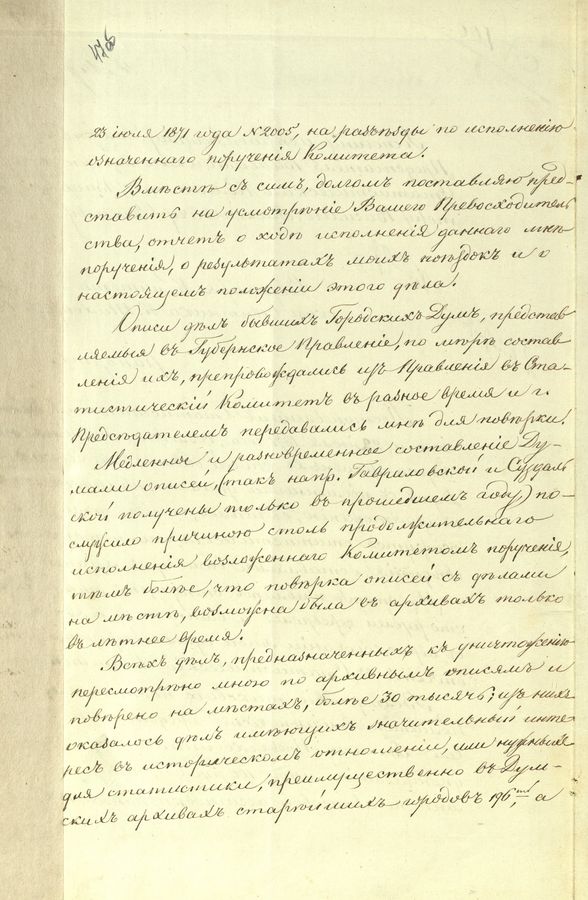 47об
23 іюля 1871 года N 2005, на разъѣзды по исполненію
означеннаго порученія Комитета.
Вмѣстѣ съ симъ, долгомъ поставляю пред-
ставить на усмотрѣніе Вашего Превосходитель
ства, отчетъ о ходѣ исполненія даннаго мнѣ
порученія, о результатахъ моихъ поѣздокъ и о
настоящемъ положеніи этого дѣла.
Описи дѣлъ бывшихъ Городскихъ Думъ, представ
ляемыя въ Губернское Правленіе, по мѣрѣ состав
ленія ихъ, препровождались изъ Правленія въ Ста-
тистическій Комитетъ въ разное время и г.
Предсѣдателемъ передавались мнѣ для повѣрки.
Медленное и разновременное составленіе Ду-
мами описей, (такъ напр. Гавриловской и Суздаль
ской получены только въ прошедшемъ году) по-
служило причиною столь продолжительнаго
исполненія возложеннаго Комитетомъ порученія,
тѣмъ болѣе, что повѣрка описей съ дѣлами
на мѣстѣ, возможна была въ архивахъ только
въ лѣтнее время.
Всѣхъ дѣлъ, предназначенныхъ къ уничтоженію
пересмотрѣно мною по архивнымъ описямъ и
повѣрено на мѣстахъ, болѣе 30 тысячъ; изъ нихъ
оказалось дѣлъ имѣющихъ значительный инте-
ресъ въ историческомъ отношеніи, или нужныхъ
для статистики, преимущественно въ Дум-
скихъ архивахъ старѣйшихъ городовъ 196, а